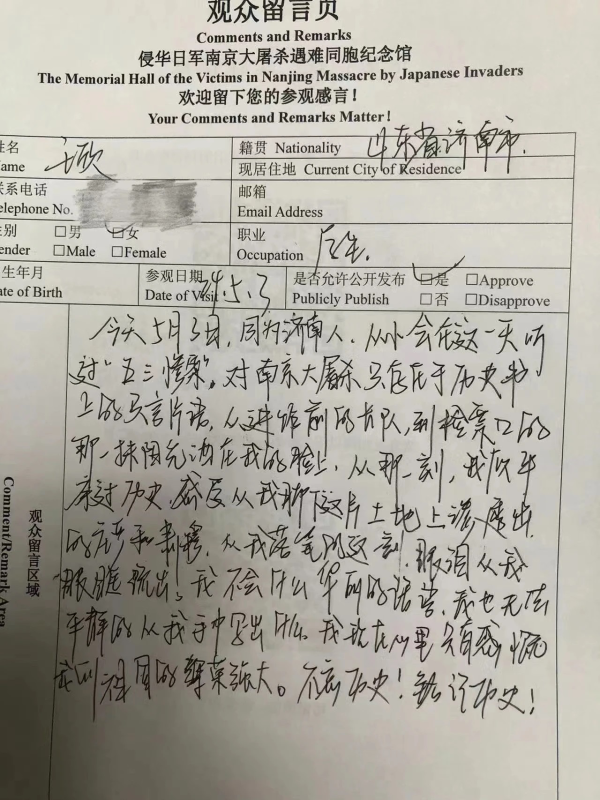 观众留言页
Comments and Remarks
侵华日军南京大屠杀遇难同胞纪念馆
The Memorial Hall of the Victims in Nanjing Massacre by Japanese Invaders
欢迎留下您的参观感言！
Your Comments and Remarks Matter!
姓名
Name
籍贯 Nationality 山东省济南市.
现居住地 Current City of Residence
联系电话
Telephone No.
邮箱
Email Address
性别 □男 □女
Gender □Male □Female
职业
Occupation 医生.
出生年月
Date of Birth
参观日期
Date of Visit 24.5.3
是否允许公开发布 □是 □Approve
Publicly Publish □否 □Disapprove
今天5月3日，因为济南人，从小会在这一天听
过“五三惨案”。对南京大屠杀只存在于历史书
上的只言片语，从进馆前的长队，到检票口的
那一抹阳光洒在我的脸上，从那一刻，我仿佛
穿过历史，感受从我脚下这片土地上渗透出
的 和 ，从我落笔的这刻，眼泪从我
眼眶流出。我不会什么华丽的语言，我也无法
平静的从我手中写出什么，我现在心里只有感慨
我们祖国的繁荣强大。不忘历史！铭记历史！
观众留言区域
Comment/Remark Area